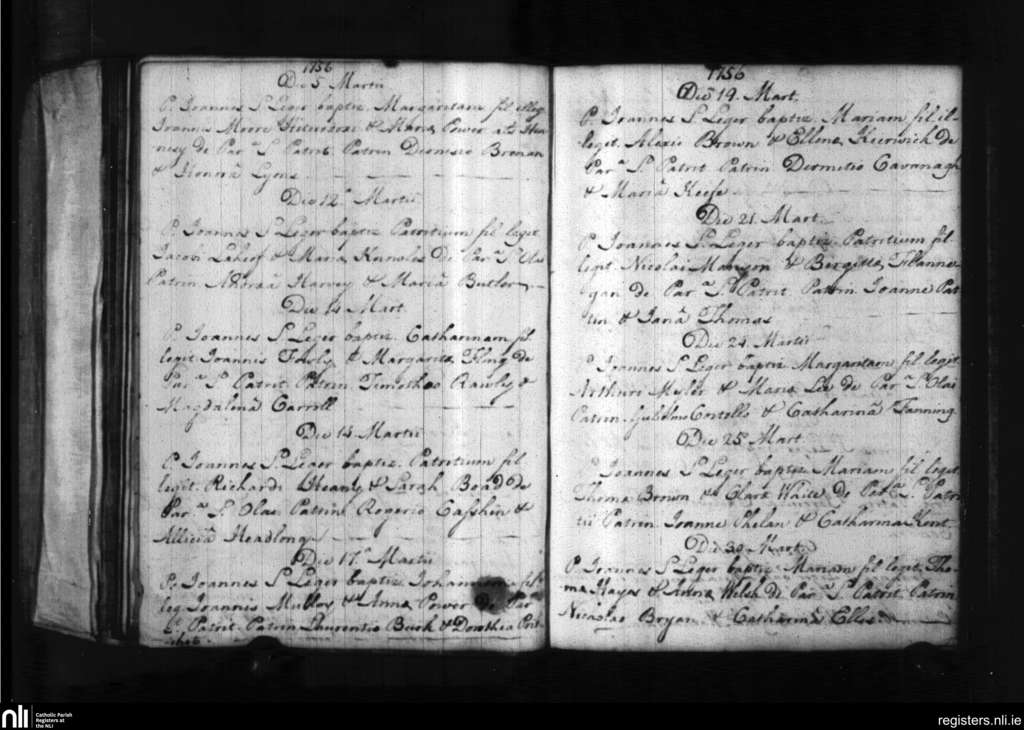 1756
Die 5 Martii
P. Joannes St Leger baptiz. Margaritam fil illeg
Joannis Moore & Maria Power als
de Par. S. Patrit. Patrin Dionisio Brenan
& Honora Lyons
Die 12a Martii
P. Joannes St Leger baptiz Patritium fil legit
Jacobi & Maria Knowles de Par. St Olai
Patrin Harvey & Maria Butler
Die 14 Mart
P. Joannes St Leger baptiz. Catharinam fil.
legit Joannis & Margarita Fling de
Par. St Patrit Patrin Timotheo Rawley &
Magdalena Carroll
Die 14 Martii
P. Joannes St Leger baptiz. Patritium fil
legit. Richardi Heany & Sarah Boad de
Par. St Olai Patrin Rogerio Casshin &
Allicia Headlong
Die 17a Martii
P. Joannes St Leger baptiz. fil
leg Joannis Mulloy & Anna Power de Par
St Patrit Patrin Laurentio Burk & Dorothea
1756
Die 19. Mart.
P. Joannes St Leger baptiz. Mariam fil il-
legit. Alexio Brown & Ellena de
Par. St. Patrit Patrin Dermitio Cavanagh
& Maria Keefe
Die 21 Mart.
P. Joannes St. Leger baptiz. Patritium fil.
legit Nicolai & Bergitta Flanne-
gan de Par. St. Patrit Patrin Joanne Pat-
tin & Jana Thomas
Die 24 Martii
P. Joannes St Leger baptiz Margaritam fil legit
Arthuri Myler & Maria Lee de Par St Olai
Patrin. Gulielmo Costollo & Catharina Fanning
Die 25 Mart
P. Joannes St Leger baptiz Mariam fil legit
Thoma Brown & Clara Waite de Par. St. Patri-
tii Patrin Joanne Phelan & Catharina Kent
Die 30 Mart.
P. Joannes St Leger baptiz Mariam fil legit Tho-
ma Hayes & Anna Welsh de Par St. Patrit Patrin
Nicolao Bryan & Catharina Elles
nli
Catholic Parish
Registers at
the NLI
registers.nli.ie